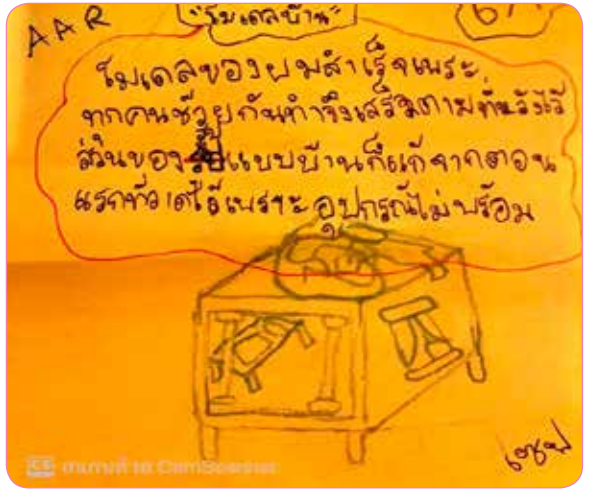 AAR
"โมเดลบ้าน"
โมเดลของผมสำเร็จเพราะ
ทุกคนช่วยกันทำจึงเสร็จตามที่หวังไว้
ส่วนของรูปแบบบ้านก็แก้จากตอน
แรกที่วาดไว้เพราะอุปกรณ์ไม่พร้อม
เชฟ
CS สแกนด้วย CamScanner